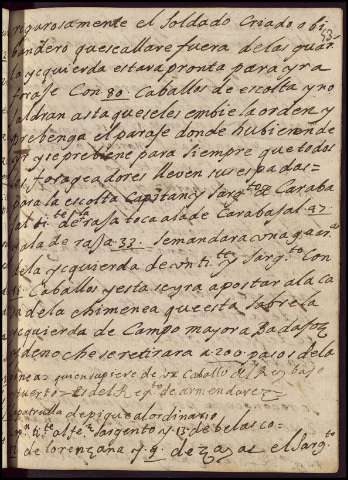 rigurosamente el Soldado Criado o bi
bandero que se allare fuera de las guar
la yzquierda estara pronta para yr a
fraje Con 80 Caballos de escolta y no
aldran asta que se les embie la orden y
prebenga el paraje donde hubieren de
yr y se prebiene para siempre que todos
los forageadores lleven sus espadas =
para la escolta Capitan y Sargto de Caraba
al bi te de rasa toca a la de Carabajal 47
a la de rasa 33 Se mandara una guar
de la yzquierda de un ti te y Sargto Con
Caballos y esta se yra apostar a la ca
sa de la chimenea que esta sobre la
yzquierda de Campo mayor a Badajoz
y de noche se retirara a 200 pasos de la
linea = quien supiere de un Caballo
muerto del Regto de armendarez
patrulla de pique a lo ordinario
ti te alfz Sargento y 13 de belasco =
de lorenzana y 9 de el Sargto
53